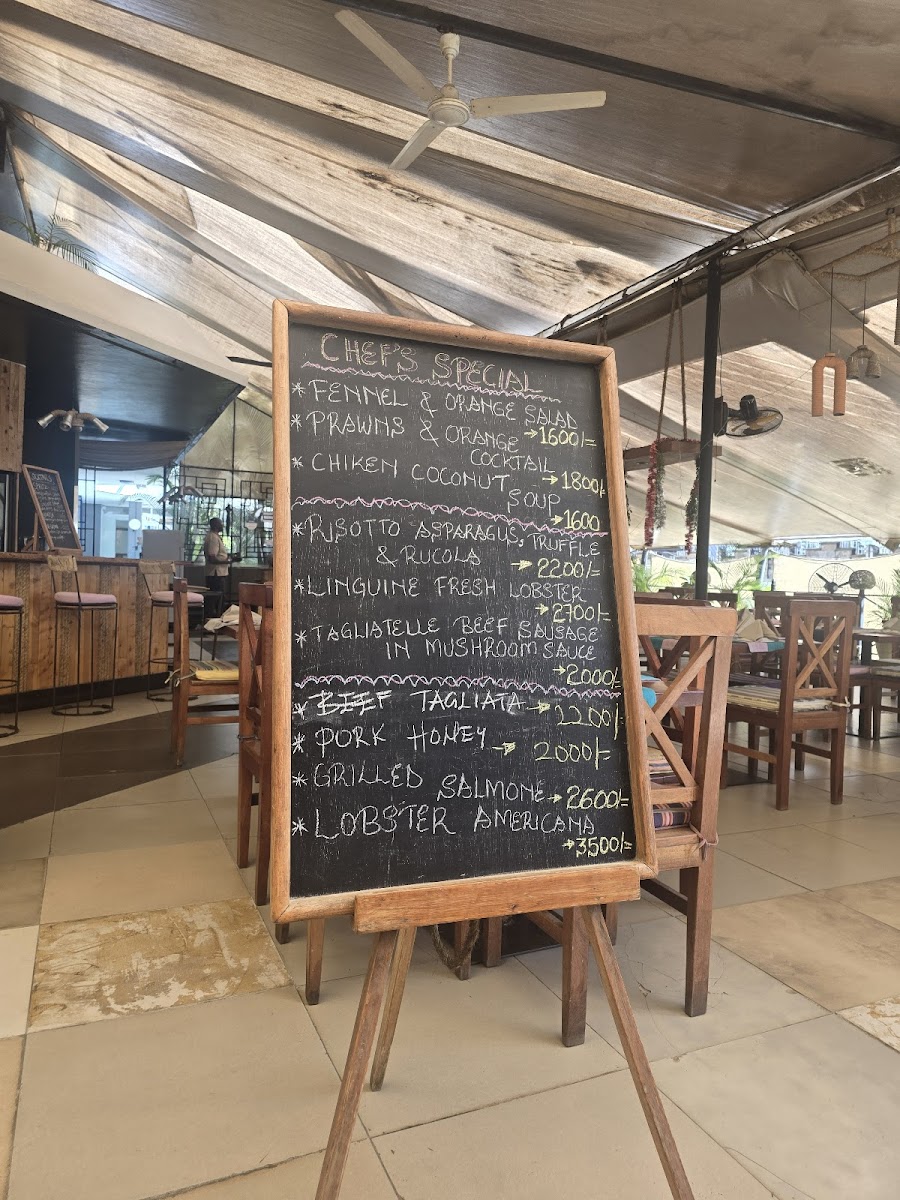 CHEF'S SPECIAL
* FENNEL & ORANGE SALAD
→1600/=
* PRAWNS & ORANGE
COCKTAIL
→1800/-
* CHIKEN COCONUT
SOUP
→1600
* RISOTTO ASPARAGUS, TRUFFLE
& RUCOLA → 2200/=
* LINGUINE FRESH LOBSTER
→2700/=
* TAGLIATELLE BEEF SAUSAGE
IN MUSHROOM SAUCE
→2000/=
* BEEF TAGLIATA → 2200/-
* PORK HONEY → 2000/-
* GRILLED SALMONE → 2600/=
* LOBSTER AMERICANA
→3500/=